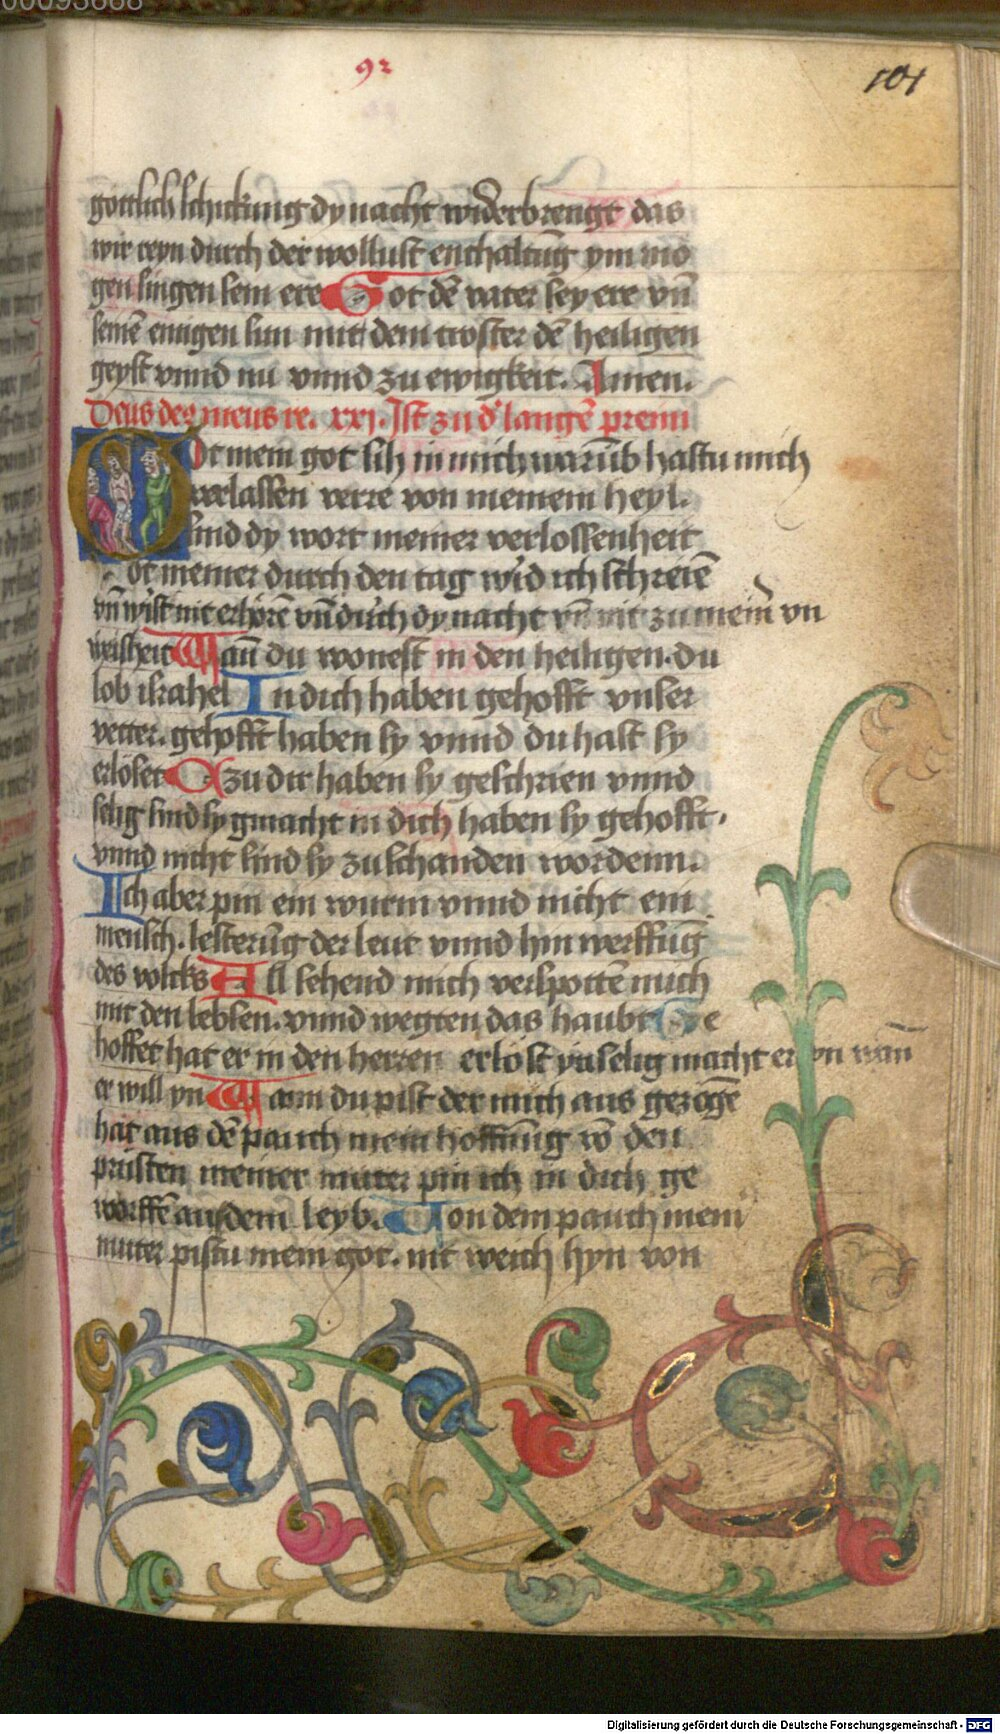 00093668
92
101
gottlich schickung dy nacht widerbrengt das
wir reyn durch der wollust enthaltūg ym mo
gen singen sein ere Got dē vater sey ere vñ
seinē einigen sun mit dem troster dē heiligen
geyst vnnd nu vnnd zu ewigkeit. Amen.
Deus deus meus re. xxj. Ist zu d' langē preim
Got mein got sih in mich warūb hastu mich
verlassen verre von meinem heyl.
sind dy wort meiner verlossenheit
Got meiner durch den tag wird ich schreiē
vñ wirst nit erhörē vñ durch dy nacht vñ nit zu meiner vn
weisheit Wañ du wonest in den heiligen. du
lob israhel In dich haben gehofft vnser
vetter. gehofft haben sy vnnd du hast sy
erlöset zu dir haben sy geschrien vnnd
selig sind sy gmacht in dich haben sy gehofft.
vnnd nicht sind sy zu schanden wordenn.
Ich aber pin ein wurm vnnd nicht ein
mensch. lesterūg der leut vnnd hin werffūg
des volcks All sehend mich verspottē mich
mit den lebsen. vnnd wegten das haubt Ge
hoffet hat er in den herren erlöst yn selig macht er yn wañ
er will yn Wann du pist der mich aus gezogē
hat aus dē pauch mein hoffnūg vō den
prüsten meiner muter pin ich in dich ge
worffē aus dem leyb. Von dem pauch meiner
muter pistu mein got. nit weich hyn von
Digitalisierung gefördert durch die Deutsche Forschungsgemeinschaft - DFG